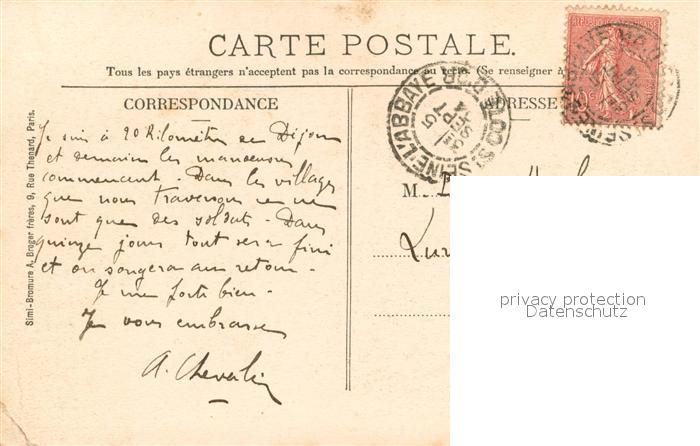 CARTE POSTALE.
Tous les pays étrangers n'acceptent pas la correspondance au recto. (Se renseigner à
CORRESPONDANCE
ADRESSE
Je suis à 20 Kilomètres de Dijon
et demain les manœuvres
commencent. Dans les villages
que nous traversons ce ne
sont que des soldats. Dans
quinze jours tout sera fini
et on songera au retour.
Je me porte bien.
Je vous embrasse
A. Chevalier
M.
Simi-Bromure A. Breger frères, 9, Rue Thenard, Paris.
privacy protection
Datenschutz